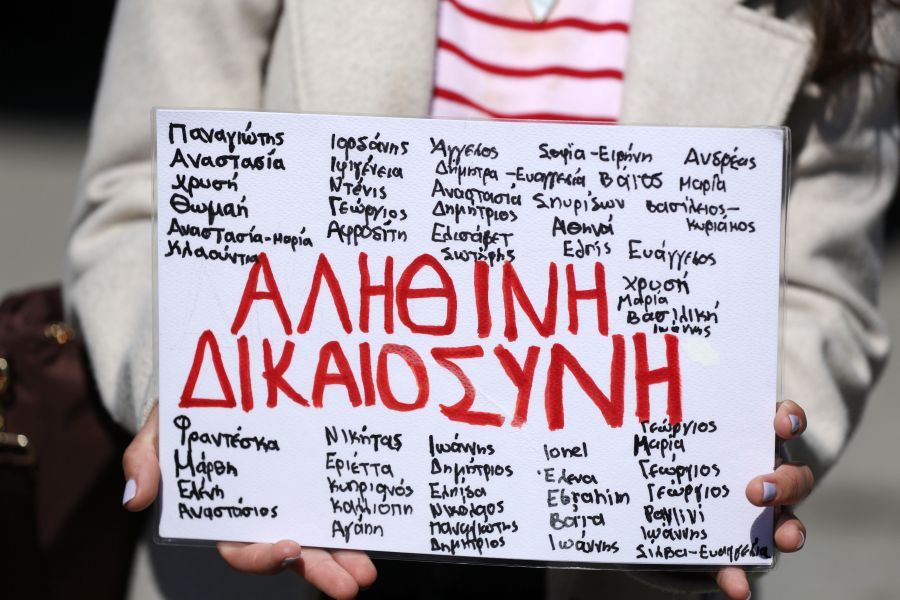 Παναγιώτης
Αναστασία
Χρυσή
Θωμαή
Αναστασία-Μαρία
Κλαούντια
Ιορδάνης
Ιφιγένεια
Ντένις
Γεώργιος
Αφροδίτη
Άγγελος
Δήμητρα-Ευαγγελία
Αναστασία
Δημήτριος
Ελισάβετ
Σωτήρης
Σοφία-Ειρήνη
Βάιος
Σπυρίδων
Αθηνά
Ελπίς
Ανδρέας
Μαρία
Βασίλειος-
Κυριάκος
Ευάγγελος
Χρυσή
Μαρία
Βασιλική
Ιωάννης
ΑΛΗΘΙΝΗ
ΔΙΚΑΙΟΣΥΝΗ
Φραντέσκα
Μάρθη
Ελένη
Αναστάσιος
Νικήτας
Εριέττα
Κυπριανός
Καλλιόπη
Αγάπη
Ιωάννης
Δημήτριος
Ελπίδα
Νικόλαος
Παναγιώτης
Δημήτριος
Ionel
Έλενα
Ebrahim
Βάια
Ιωάννης
Γεώργιος
Μαρία
Γεώργιος
Γεώργιος
Ιωάννης
Σίλβα-Ευαγγελία